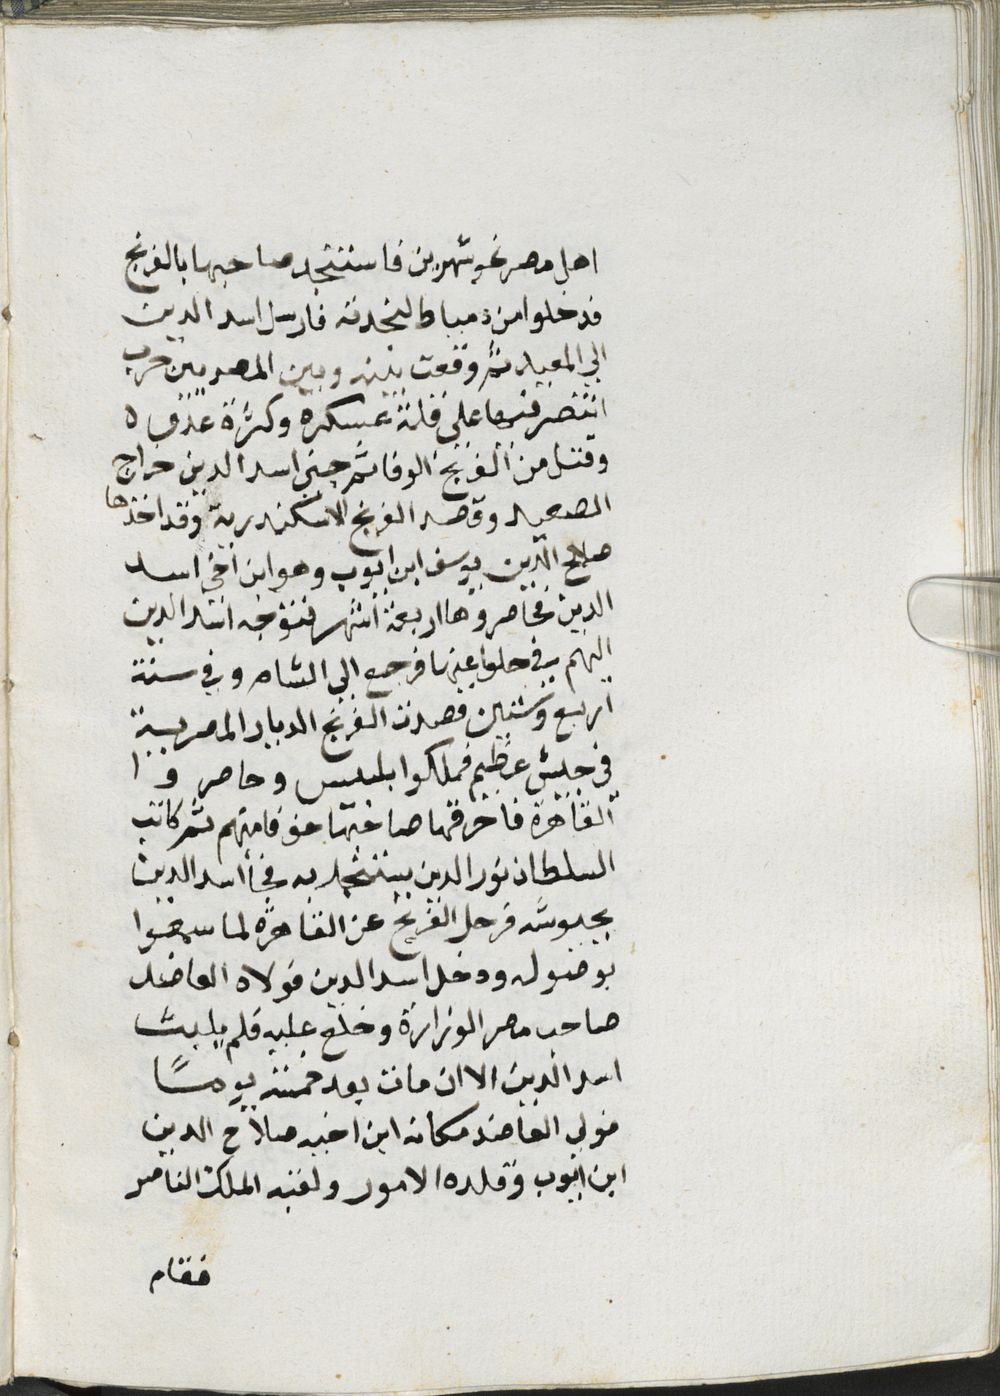 اهل مصر نحو شهرين فاستنجد صاحبها بالفرنج
فدخلوا من دمياط لنجدته فارسل اسد الدين
الي الصعيد ثم وقعت بينه وبين المصريين حرب
انتصر فيها على قلة عسكره وكثرة عدوه
وقتل من الفرنج الوفا ثم جبى اسد الدين خراج
الصعيد وقصد الفرنج الاسكندرية وقد اخذها
صلاح الدين يوسف ابن ايوب وهو ابن اخي اسد
الدين فحاصروها اربعة اشهر فتوجه اسد الدين
اليهم فرحلوا عنها فرجع الي الشام وفي سنة
اربع وستين قصدت الفرنج الديار المصرية
في جيش عظيم فملكوا بلبيس وحاصروا
القاهرة فاحرقها صاحبها خوفا منهم ثم كاتب
السلطان نور الدين يستنجد به فجا اسد الدين
بجيوشه فرحل الفرنج عن القاهرة لما سمعوا
بوصوله ودخل اسد الدين فولاه العاضد
صاحب مصر الوزارة وخلع عليه فلم يلبث
اسد الدين الا ان مات بعد خمسة يومًا
فولي العاضد مكانه ابن اخيه صلاح الدين
ابن ايوب وقلده الامور ولقبه الملك الناصر
فقام